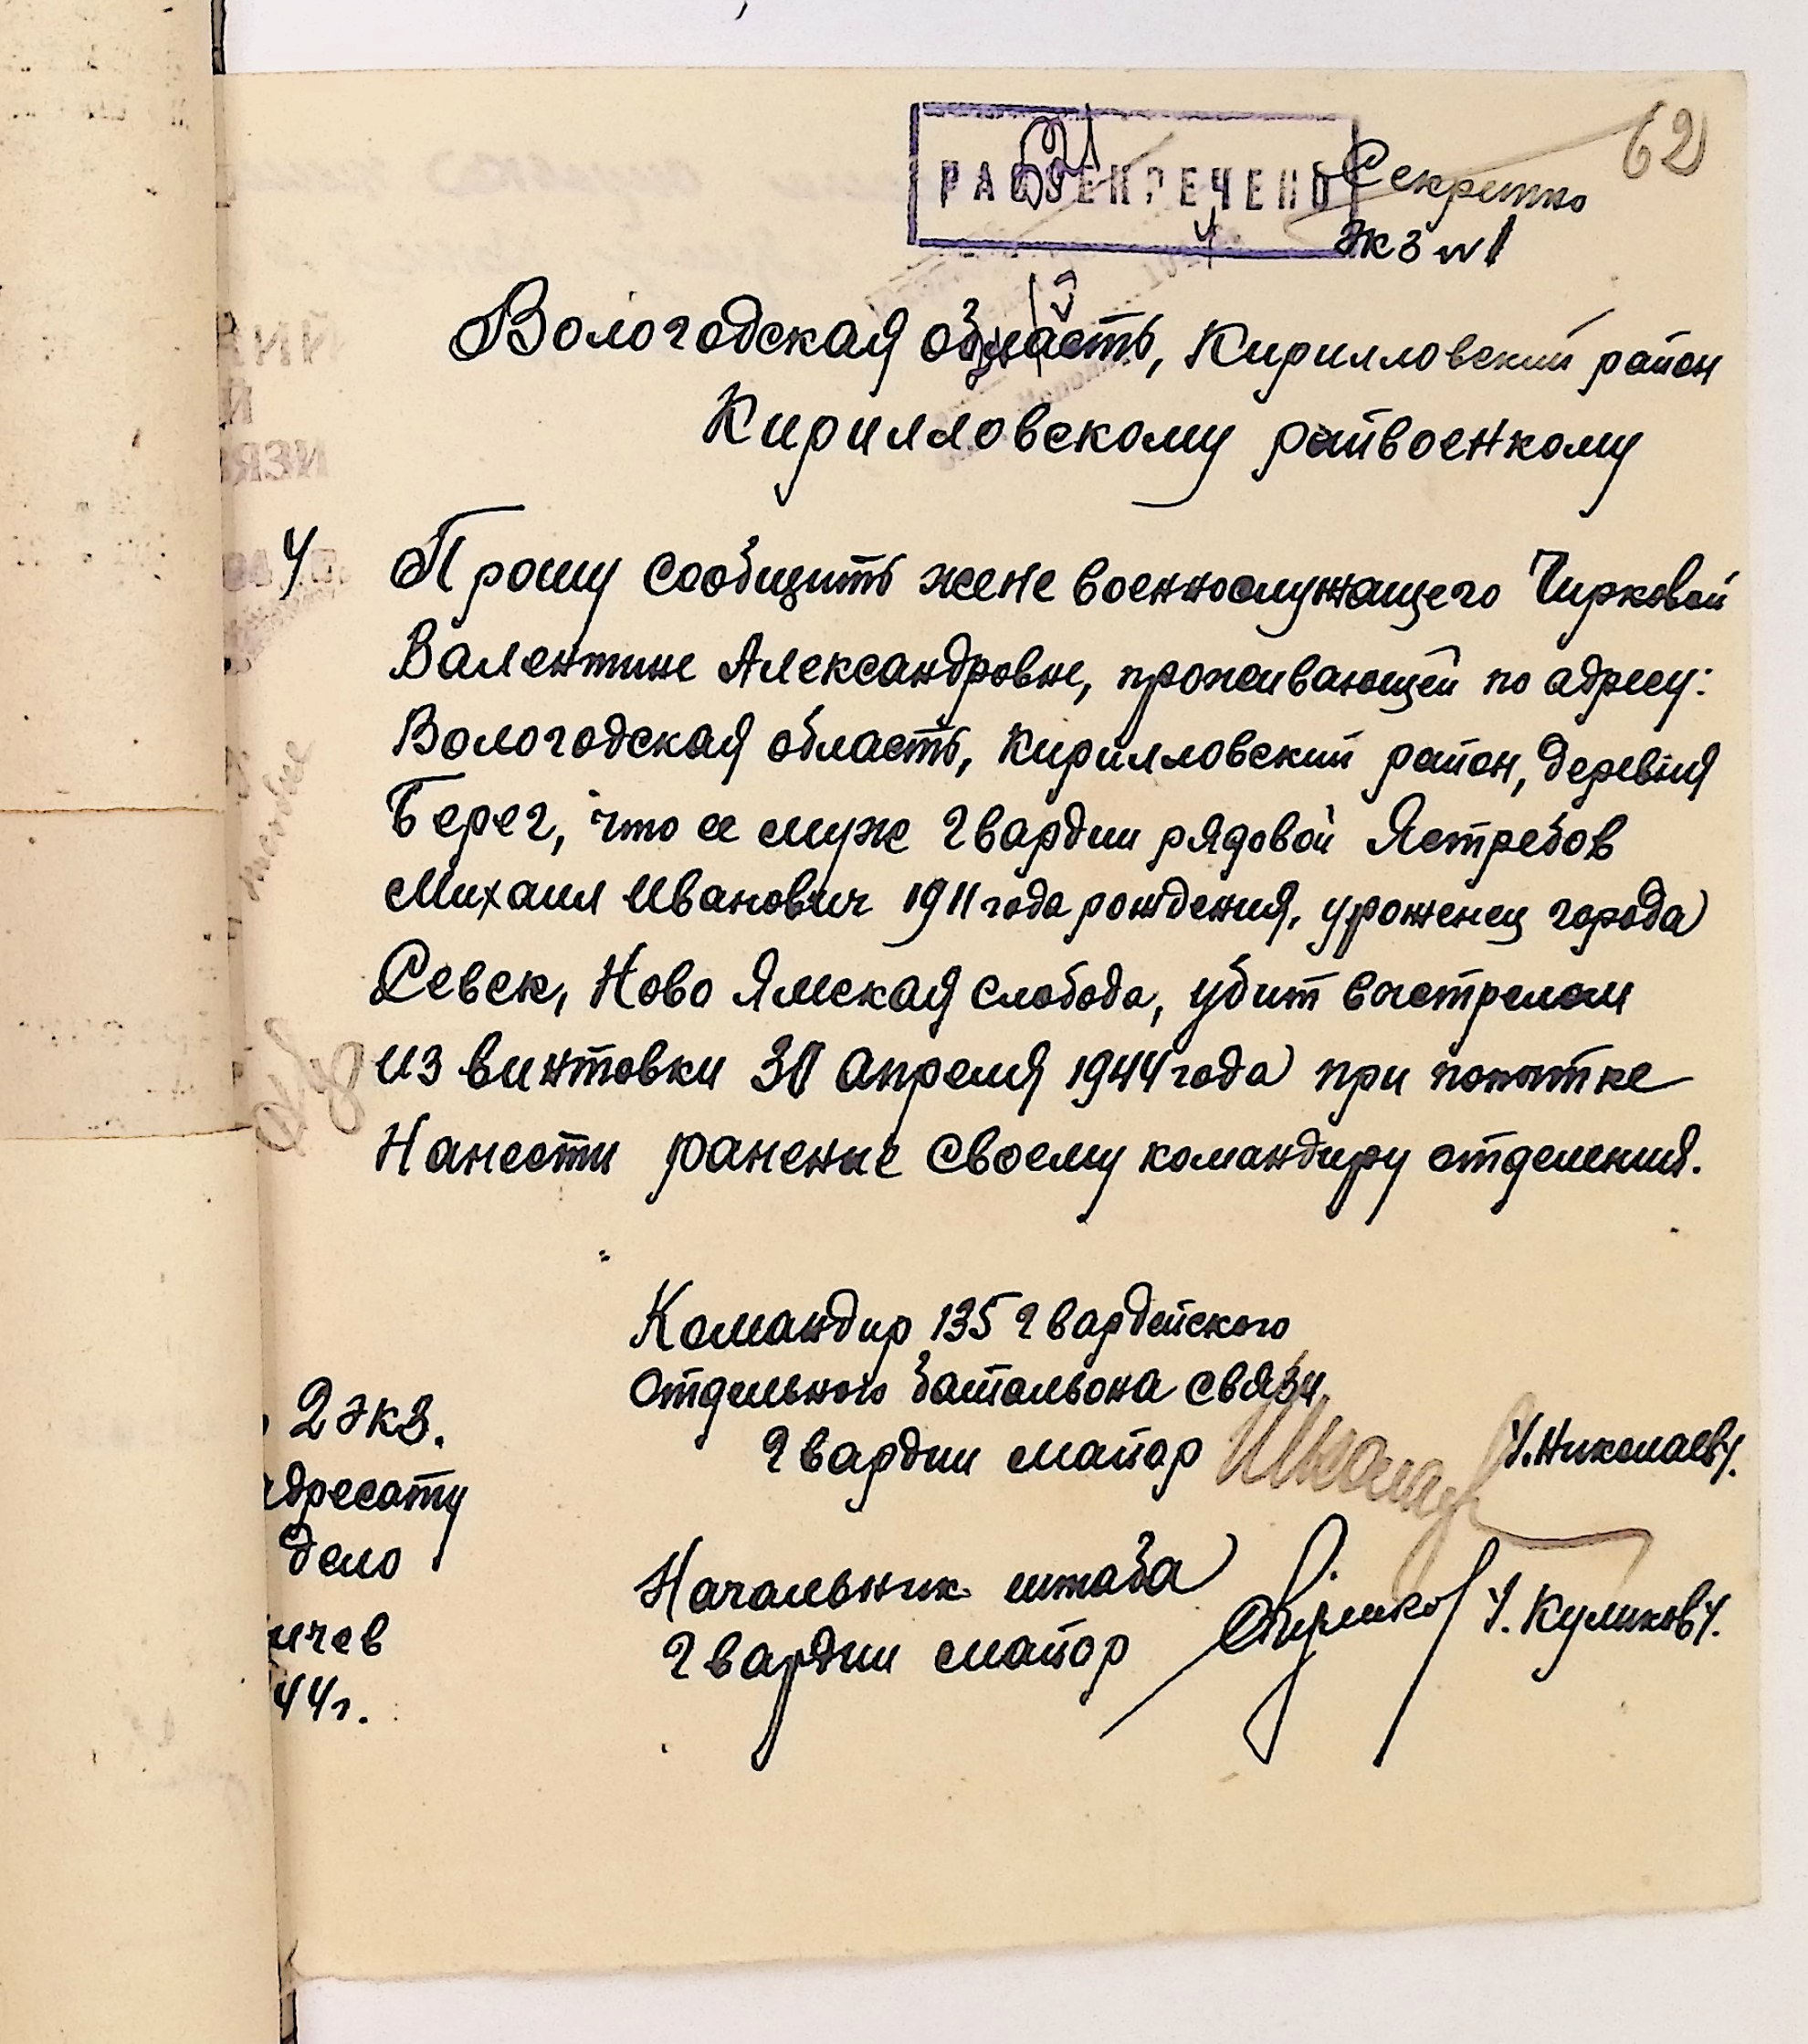 62
РАССЕКРЕЧЕНО
Секретно
Экз №1
Вологодская область, Кирилловский район
Кирилловскому райвоенкому
Прошу сообщить жене военнослужащего Чирковой
Валентине Александровне, проживающей по адресу:
Вологодская область, Кирилловский район, деревня
Берег, что ее муж гвардии рядовой Ястребов
Михаил Иванович 1911 года рождения, уроженец города
Севск, Ново Ямская слобода, убит выстрелом
из винтовки 30 апреля 1944 года при попытке
нанести ранение своему командиру отделения.
Командир 135 гвардейского
отдельного батальона связи
гвардии майор /Николаев/.
Начальник штаба
гвардии майор /Куликов/.
2 экз.
адресату
дело
ичев
44г.